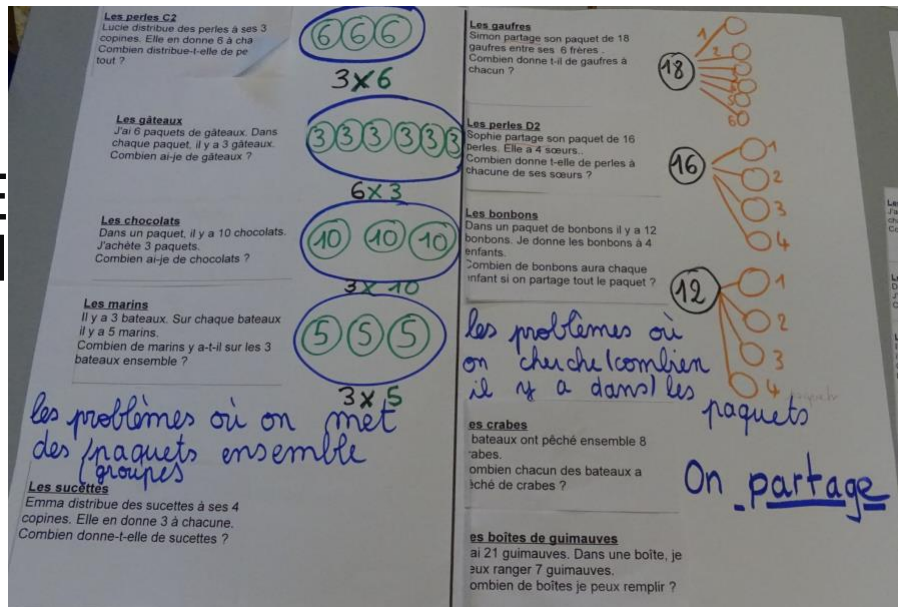 Les perles C2
Lucie distribue des perles à ses 3
copines. Elle en donne 6 à cha
Combien distribue-t-elle de pe
tout ?
6 6 6
3 x 6
Les gâteaux
J'ai 6 paquets de gâteaux. Dans
chaque paquet, il y a 3 gâteaux.
Combien ai-je de gâteaux ?
3 3 3 3 3 3
6 x 3
Les chocolats
Dans un paquet, il y a 10 chocolats.
J'achète 3 paquets.
Combien ai-je de chocolats ?
10 10 10
3 x 10
Les marins
Il y a 3 bateaux. Sur chaque bateaux
il y a 5 marins.
Combien de marins y a-t-il sur les 3
bateaux ensemble ?
5 5 5
3 x 5
les problèmes où on met
des / paquets ensemble
groupes
Les sucettes
Emma distribue des sucettes à ses 4
copines. Elle en donne 3 à chacune.
Combien donne-t-elle de sucettes ?
Les gaufres
Simon partage son paquet de 18
gaufres entre ses 6 frères .
Combien donne t-il de gaufres à
chacun ?
18
1
2
6
Les perles D2
Sophie partage son paquet de 16
perles. Elle a 4 sœurs..
Combien donne t-elle de perles à
chacune de ses sœurs ?
16
1
2
3
4
Les bonbons
Dans un paquet de bonbons il y a 12
bonbons. Je donne les bonbons à 4
enfants.
Combien de bonbons aura chaque
enfant si on partage tout le paquet ?
12
1
2
3
4
les problèmes où
on cherche (combien
il y a dans) les
paquets
es crabes
bateaux ont pêché ensemble 8
rabes.
ombien chacun des bateaux a
êché de crabes ?
On partage
es boîtes de guimauves
ai 21 guimauves. Dans une boîte, je
eux ranger 7 guimauves.
ombien de boîtes je peux remplir ?